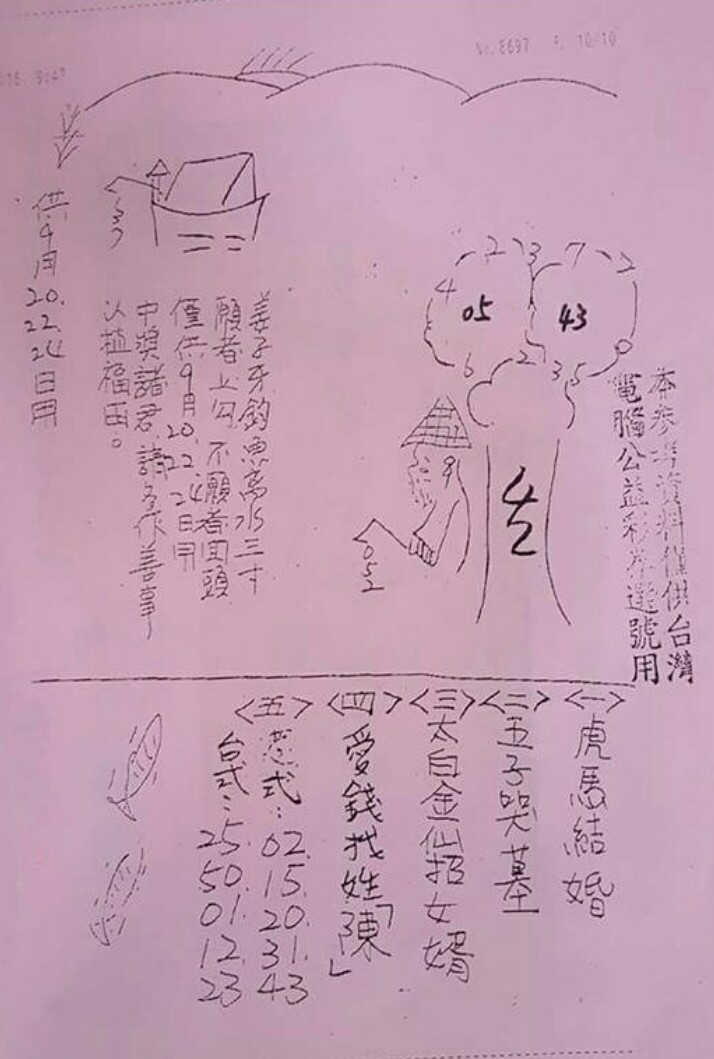 No. 8697 P. 10/10
本參考資料僅供台灣
電腦公益彩券選號用
2 3 7 2
4
05 43
6 2 3 5 0
052
姜子牙釣魚离水三寸
願者上勾 不願者回頭
僅供9月20.22.24日用
中獎諸君.請多作善事
以植福田。
供9月20.22.24日用
<一>虎馬結婚
<二>五子哭墓
<三>太白金仙招女婿
<四>愛錢找姓「陳」
<五>
式:02.15.20.31.43
台式:25.50.01.12.23